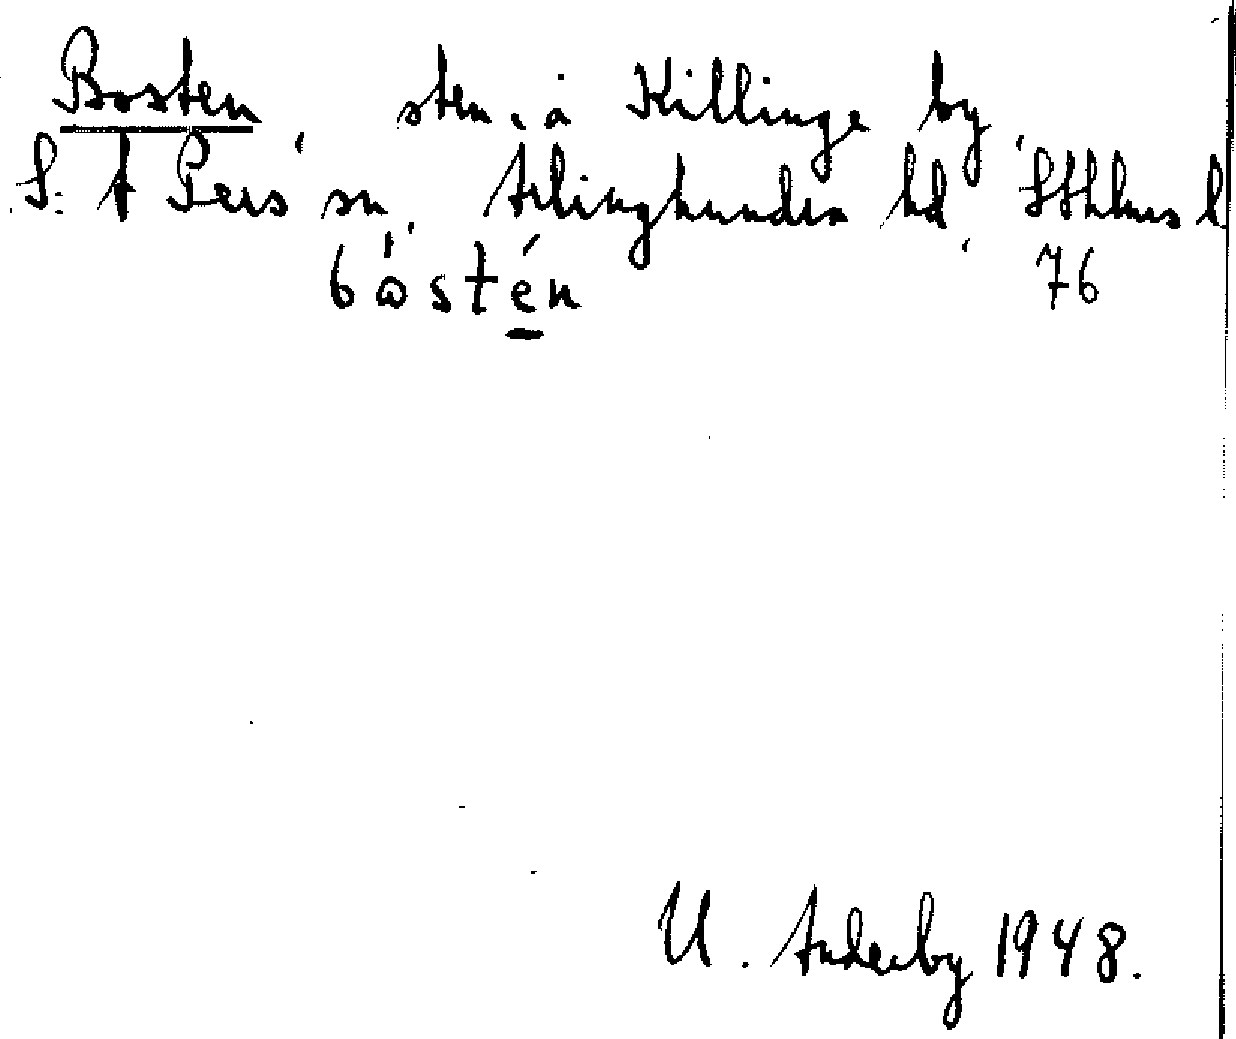 Bosten, sten, å Killinge by,
S:t Pers sn, Ärlinghundra hd, Sthlms l
bòstén 76
U. Anderby 1948.